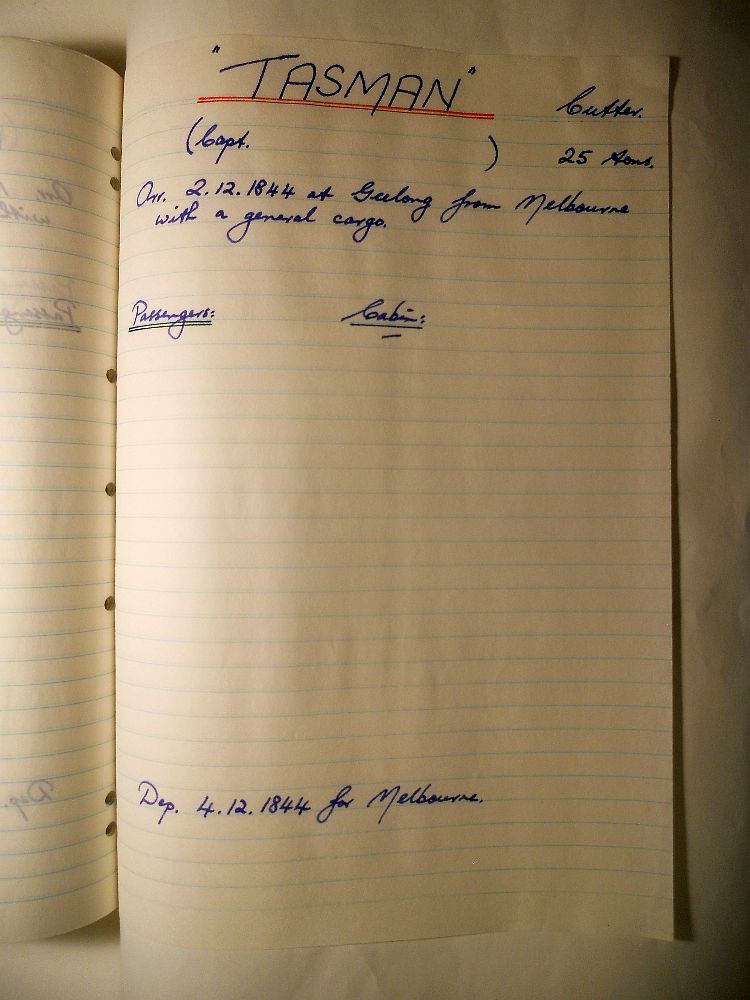 "TASMAN"
Cutter.
(Capt. )
25 tons.
Arr. 2.12.1844 at Geelong from Melbourne
with a general cargo.
Passengers: Cabin:
—
Dep. 4.12.1844 for Melbourne.